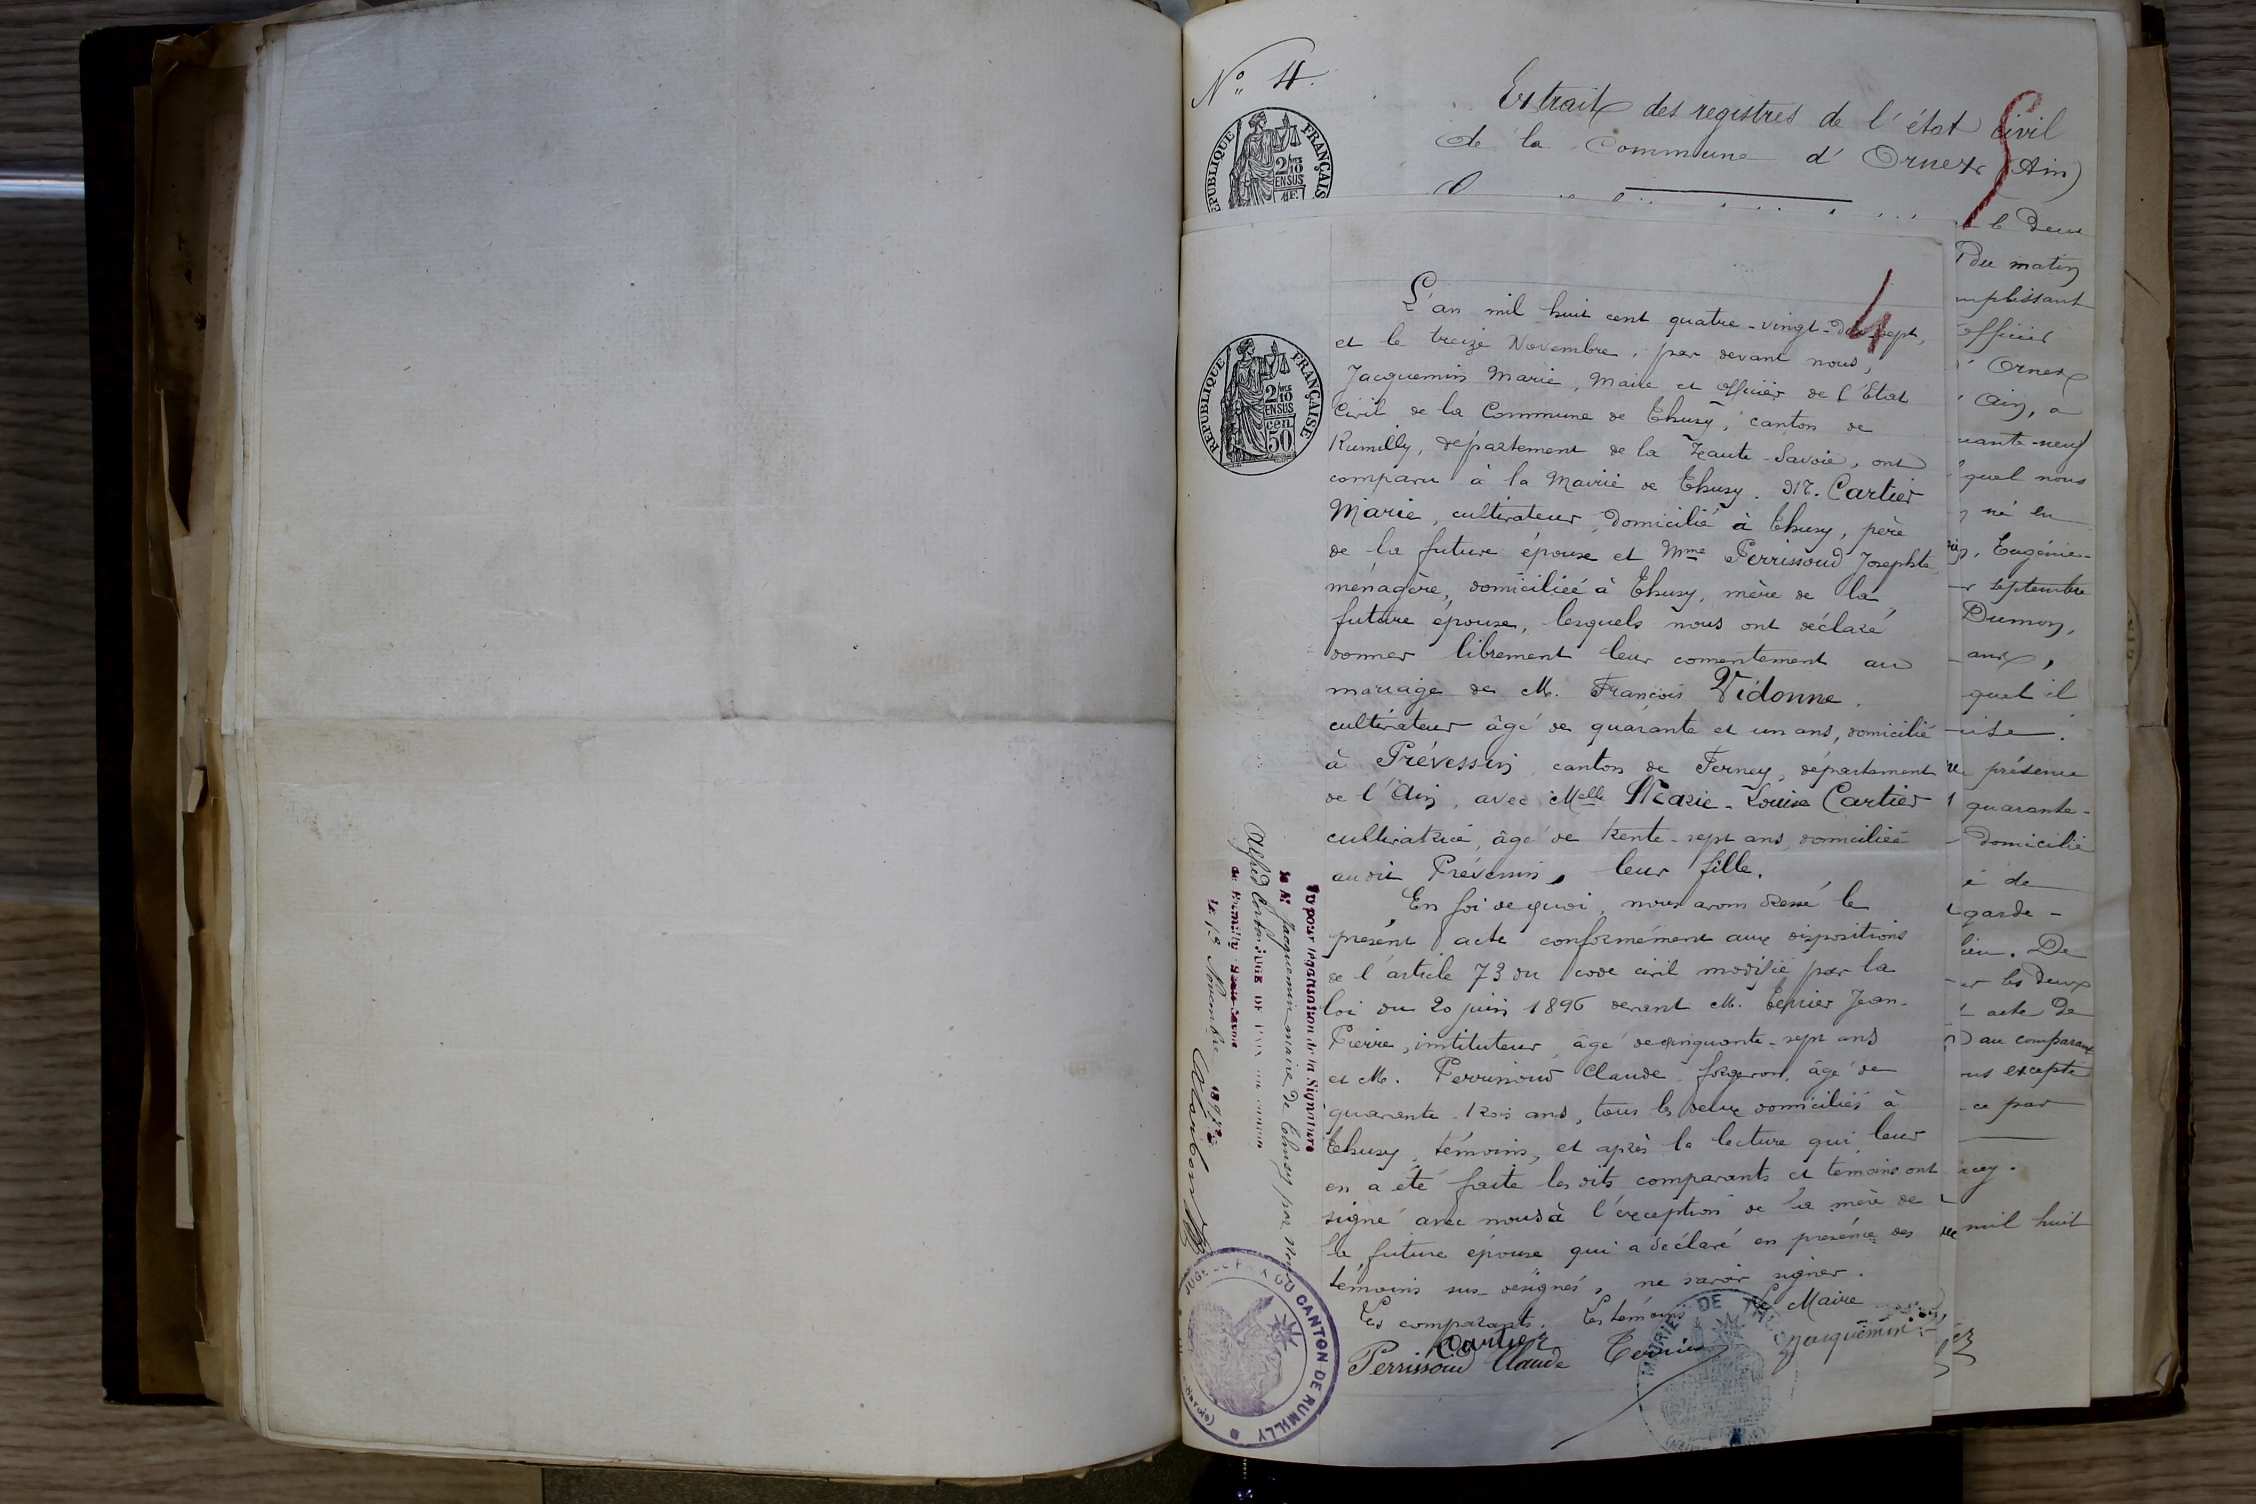 N° 4.
Extrait des registres de l'état civil
de la Commune d'Ornex (Ain)
RÉPUBLIQUE FRANÇAISE
2/10
EN SUS
le Deux
du matin
officier
Ornex
Ain, a
quel nous
né en
Eugénie-
septembre
Dumon,
quel il
présence
quarante-
domicilié
é de
garde-
De
les deux
acte De
au comparant
excepté
ce par
mil huit
4
L'an mil huit cent quatre-vingt-dix-sept,
et le treize Novembre, par devant nous,
Jacquemin Marie, Maire et officier de l'Etat
Civil de la Commune de Thusy, canton de
Rumilly, département de la Haute-Savoie, ont
comparu à la Mairie de Thusy. Mr. Cartier
Marie, cultivateur, domicilié à Thusy, père
de la future épouse et Mme Perrissoud Josephte
ménagère, domiciliée à Thusy, mère de la
future épouse, lesquels nous ont déclaré
donner librement leur consentement au
mariage de M. François Vidonne
cultivateur âgé de quarante et un ans, domicilié
à Prévessin canton de Ferney, département
de l'Ain, avec Melle Marie-Louise Cartier
cultivatrice, âgé de trente-sept ans, domiciliée
au dit Prévessin, leur fille.
En foi de quoi, nous avons dressé le
présent acte conformément aux dispositions
de l'article 73 du code civil modifié par la
loi du 20 juin 1896 devant M. Terrier Jean-
Pierre, instituteur, âgé de cinquante-sept ans
et M. Perrissoud Claude, forgeron, âgé de
quarante-trois ans, tous les deux domiciliés à
Thusy, témoins, et après la lecture qui leur
en a été faite les dits comparants et témoins ont
signé avec nous à l'exception de la mère de
la future épouse qui a déclaré en présence des
témoins sus-désignés, ne savoir signer.
Les comparants. Les témoins Le Maire
Cartier
Perrissoud Claude Terrier Jacquemin
RÉPUBLIQUE FRANÇAISE
2/10
EN SUS
50
Vu pour légalisation de la Signature
de Mr Jacquemin maire de Thusy par Nous
Alfred JUGE DE PAIX du canton
de Rumilly Haute-Savoie
Novembre 1897
JUGE DE PAIX DU CANTON DE RUMILLY
MAIRIE DE